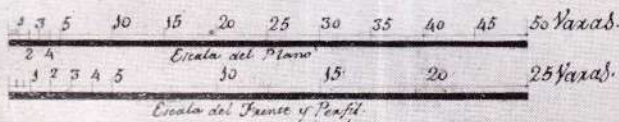 1 3 5 10 15 20 25 30 35 40 45 50 Varas.
2 4
Escala del Plano
1 2 3 4 5 10 15 20 25 Varas.
Escala del Frente y Perfil.